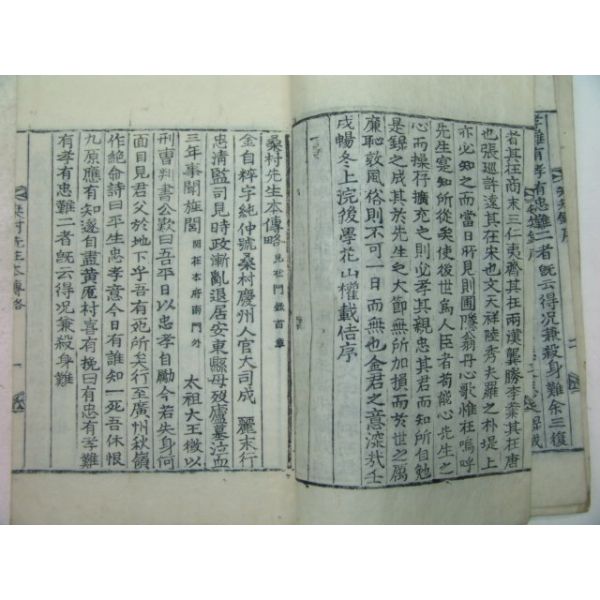 孝難有孝有忠難二者旣云得况兼殺身難余三復
者其在尚末三仁夷齊其在兩漢龔勝李業其在唐
也張巡許遠其在宋也文天祥陸秀夫羅之朴堤上
亦必知之而當日所見則圃隱翁丹心歌惟在嗚呼
先生寔知所從矣使後世爲人臣者苟能心先生之
心而操存擴充之則必孝其親忠其君而知所自勉
是錄之成其於先生之大節無所加損而於世之属
廉恥敦風俗則不可一日而無也金君之意深哉壬
戌暢冬上浣後學花山權載佶序
桑村先生本傳略 見杜門錄首章
金自粹字純仲號桑村慶州人官大司成 麗末行
忠清監司見時政漸亂退居安東縣母歿廬墓泣血
三年事聞旌閭 閭在本府南門外 太祖大王徵以
刑曹判書公歎曰吾平日以忠孝自勵今若失身何
面目見君父於地下乎吾有死所矣行至廣州秋嶺
作絶命詩曰平生忠孝意今日有誰知一死吾休恨
九原應有知遂自盡黃厖村喜有挽曰有忠有孝難
有孝有忠難二者旣云得况兼殺身難
桑村先生本傳略 一